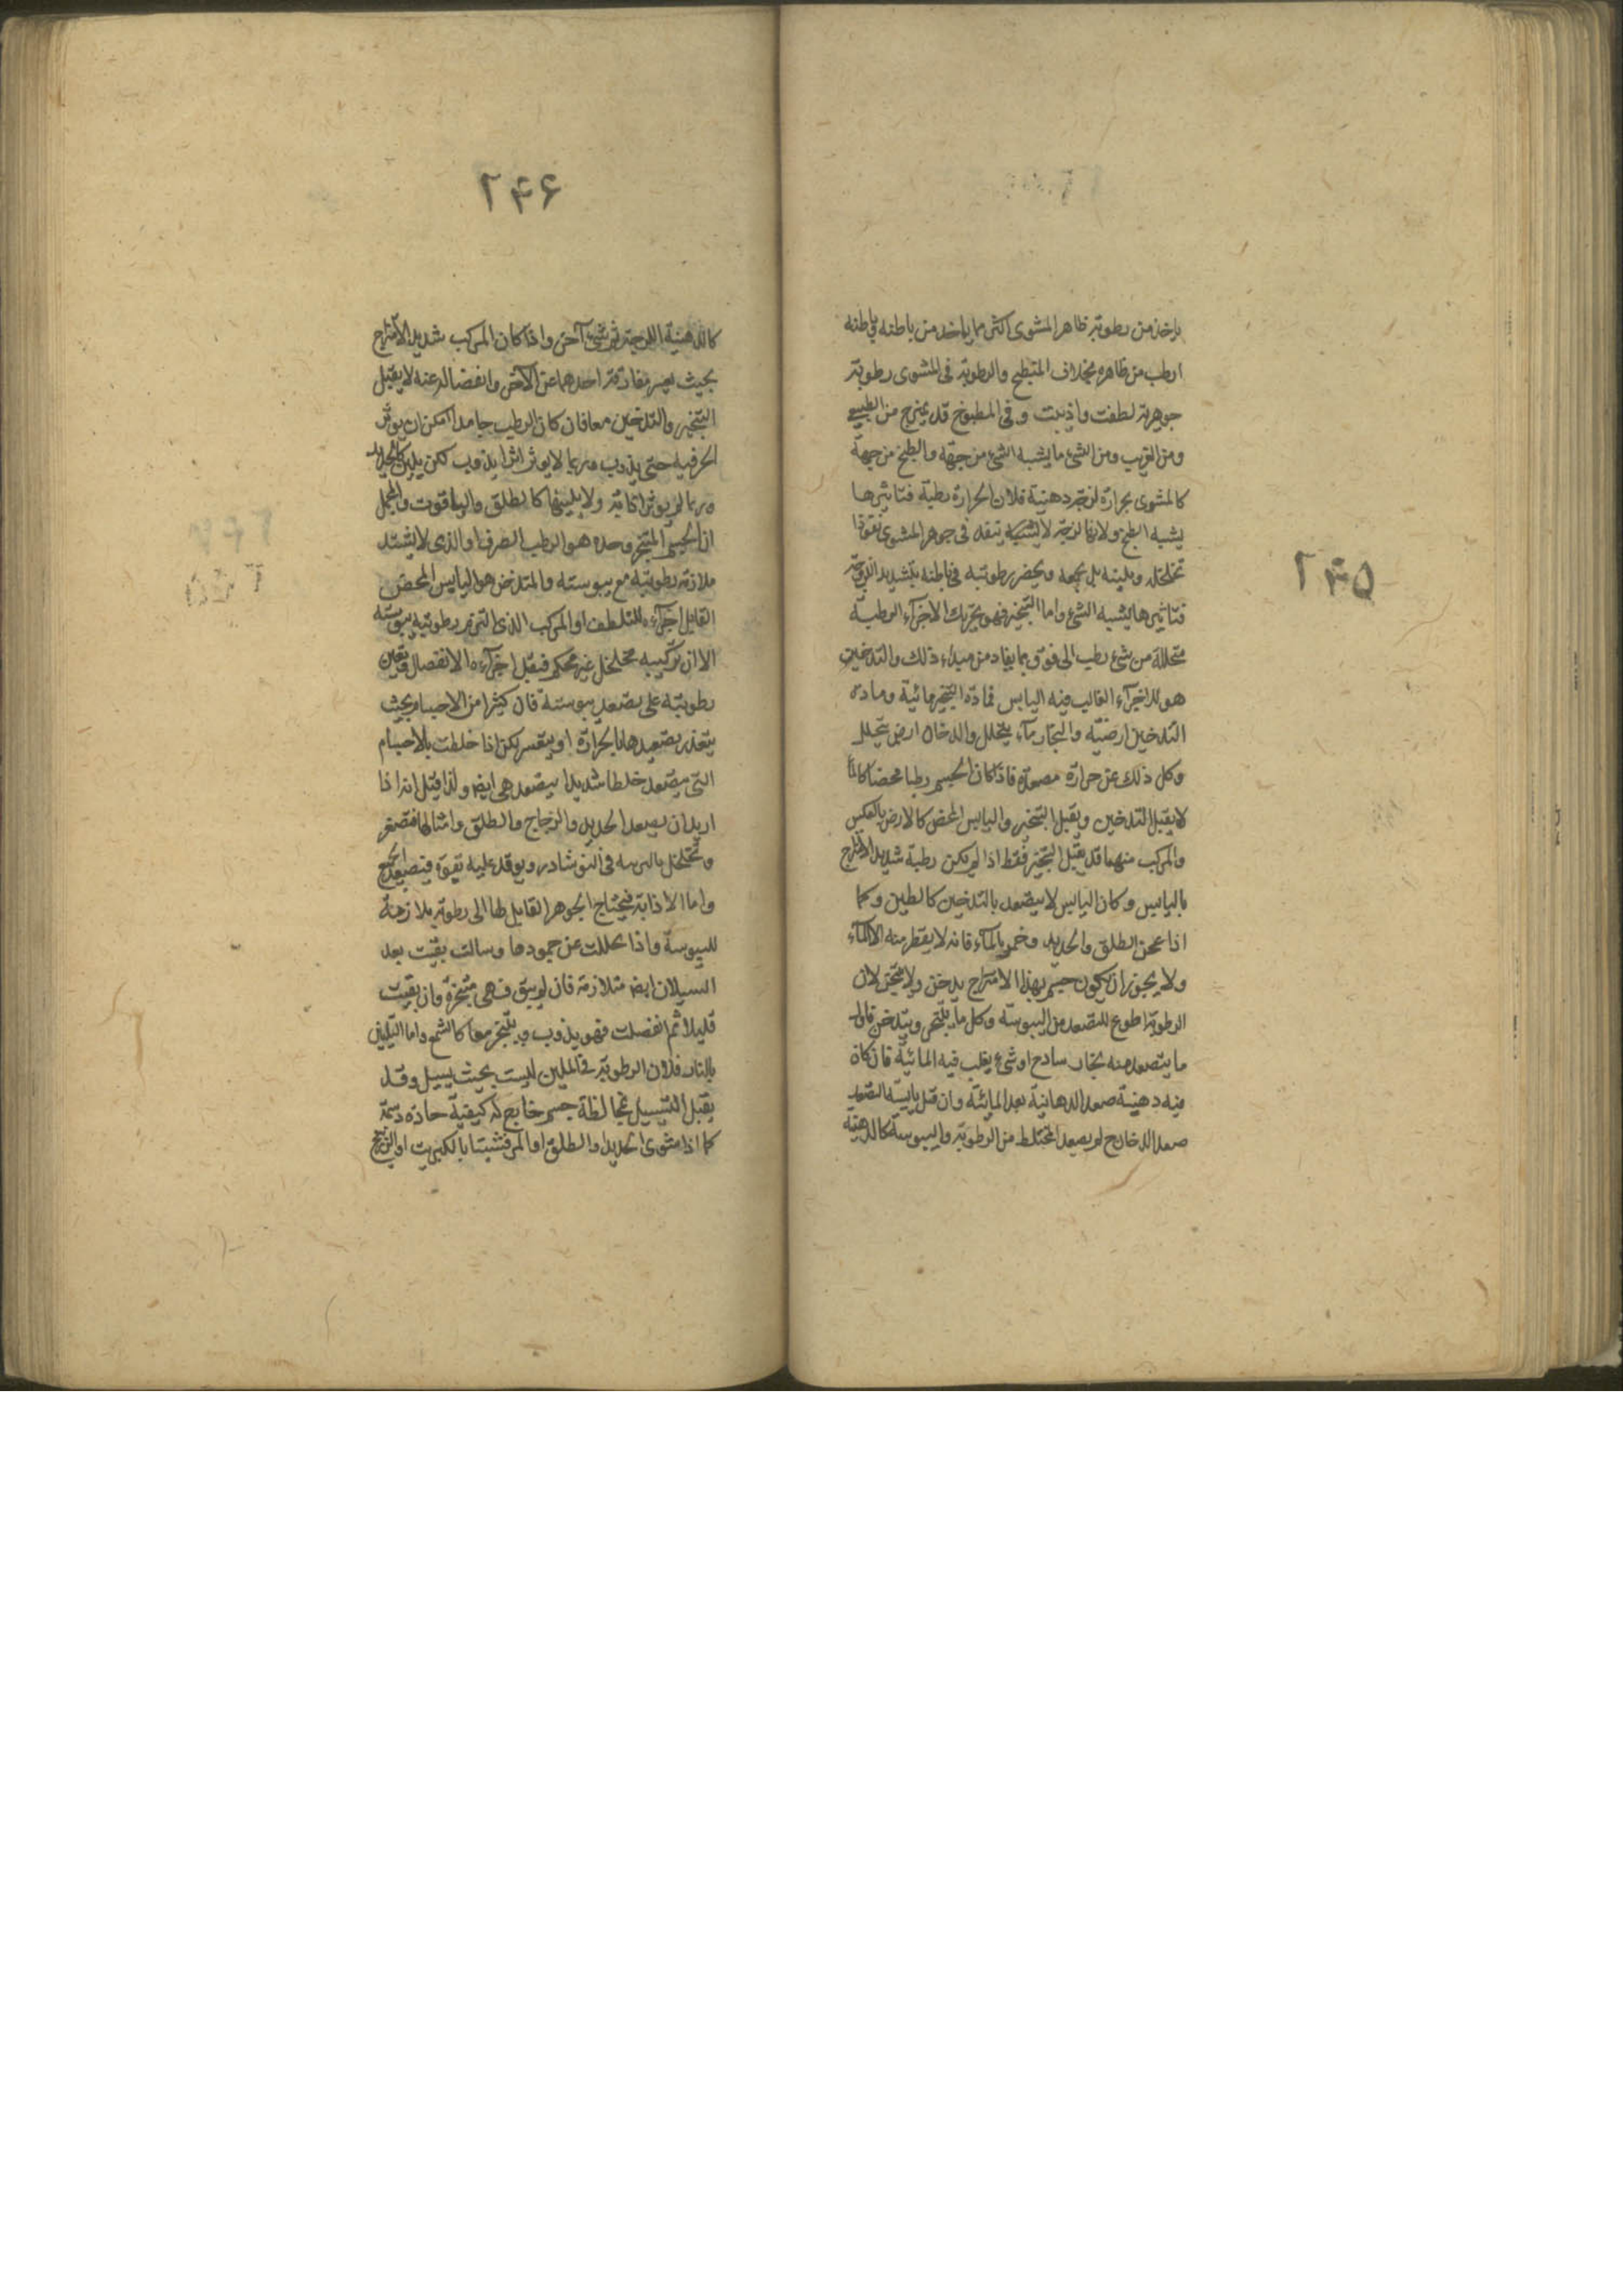 ۲۴۵
ياخذ من رطوبة ظاهر المشوى اكثر مما ياخذ من باطنه فباطنه
ارطب من ظاهره بخلاف المنطبخ والرطوبة فى المشوى رطوبة
جوهرية لطفت واذيبت وفى المطبوخ قد يمتزج من الطبيعى
ومن الغريب ومن الشئ ما يشبه الشئ من جهة والطبخ من جهة
كالمشوى بحرارة لزجة دهنية فلان الحرارة رطبة فتاثيرها
يشبه الطبخ ولانها لزجة لا ينفذ فى جوهر المشوى نفوذا
تخلخله ويلينه بل يجمعه ويحصر رطوبته فى باطنه بتشديد اللزوجة
فتاثيرها يشبه الشئ واما التبخير فهو تحريك الاجزآء الرطبة
متحللة من شئ رطب الى فوق بما يفاد من مبداء ذلك والتدخين
هو للاجزآء الغالب فيه اليابس فمادة التبخير مائية ومادة
التدخين ارضية والبخار مآء يتحلل والدخان ارض يتحلل
وكل ذلك عن حرارة مصعدة فاذا كان الجسم رطبا محضا كالمآء
لا يقبل التدخين ويقبل التبخير واليابس المحض كالارض بالعكس
والمركب منهما قد يقبل التبخير فقط اذا لم يكن رطبة شديد الامتزاج
باليابس وكان اليابس لا يتصعد بالتدخين كالطين وكما
اذا عجن الطلق والحديد وخمر بالمآء فانه لا يقطر منه الا المآء
ولا يجوز ان يكون جسم بهذا الامتزاج يدخن ولا يتبخر لان
الرطوبة اطوع للتصعد من اليبوسة وكل ما يلتهب ويتدخن فاول
ما يتصعد منه بخار ساذج او شئ يغلب فيه المائية فان كان
فيه دهنية صعد الدهانية بعد المائية وان قبل يابسه التصعد
صعد الدخان ح لم يصعد المختلط من الرطوبة واليبوسة كالدهنية
۲۴۶
كالدهنية اللزجة فى شئ آخر واذا كان المركب شديد الامتزاج
بحيث يعسر مفارقة احدهما عن الآخر وانفصاله عنه لا يقبل
التبخير والتدخين معا فان كان الرطب جامدا امكن ان يوثر
الحر فيه حتى يذوب وربما لا يوثر اثرا يذوب لكن يلين كالحديد
وربما لم يوثر اذابة ولا يلينها كالطلق والياقوت والمجمل
ان الجسم المتبخر وحده هو الرطب الصرف او الذى لا يشتد
ملازمة رطوبته مع يبوسته والمتدخن هو اليابس المحض
القابل اجزآءه للتلطف او المركب الذى التزم رطوبته يبوسته
الا ان تركيبه مخلخل غير محكم فيقبل اجزآءه الانفصال ويعين
رطوبته على تصعيد يبوسته فان كثيرا من الاجسام بحيث
يتعذر تصعيدها بالحرارة او يتعسر لكن اذا خلطت بالاجسام
التى يتصعد خلطا شديدا يتصعد هى ايض ولذا قيل انه اذا
اريد ان يصعد الحديد والزجاج والطلق وامثالها فتصغر
وتحلل فى النوشادر ويوقد عليه بقوة فيتصعد الجميع
واما الاذابة فيحتاج الجوهر القابل لها الى رطوبة ملازمة
لليبوسة واذا تحللت عن جمودها وسالت بقيت بعد
السيلان ايض متلازمة فان لم يبق فهى متبخرة وان بقيت
قليلا ثم انفصلت فهو يذوب ويتبخر معا كالشمع واما التليين
بالنار فلان الرطوبة فى الملين ليست بحيث يسيل وقد
يقبل التسييل بمخالطة جسم خارج له كيفية حادة دسمة
كما اذا شوى الحديد او الطلق او المرقشيتا بالكبريت او الزرنيخ